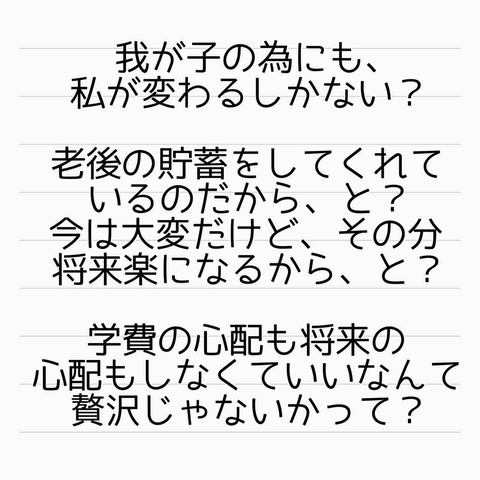 我が子の為にも、
私が変わるしかない？
老後の貯蓄をしてくれて
いるのだから、と？
今は大変だけど、その分
将来楽になるから、と？
学費の心配も将来の
心配もしなくていいなんて
贅沢じゃないかって？